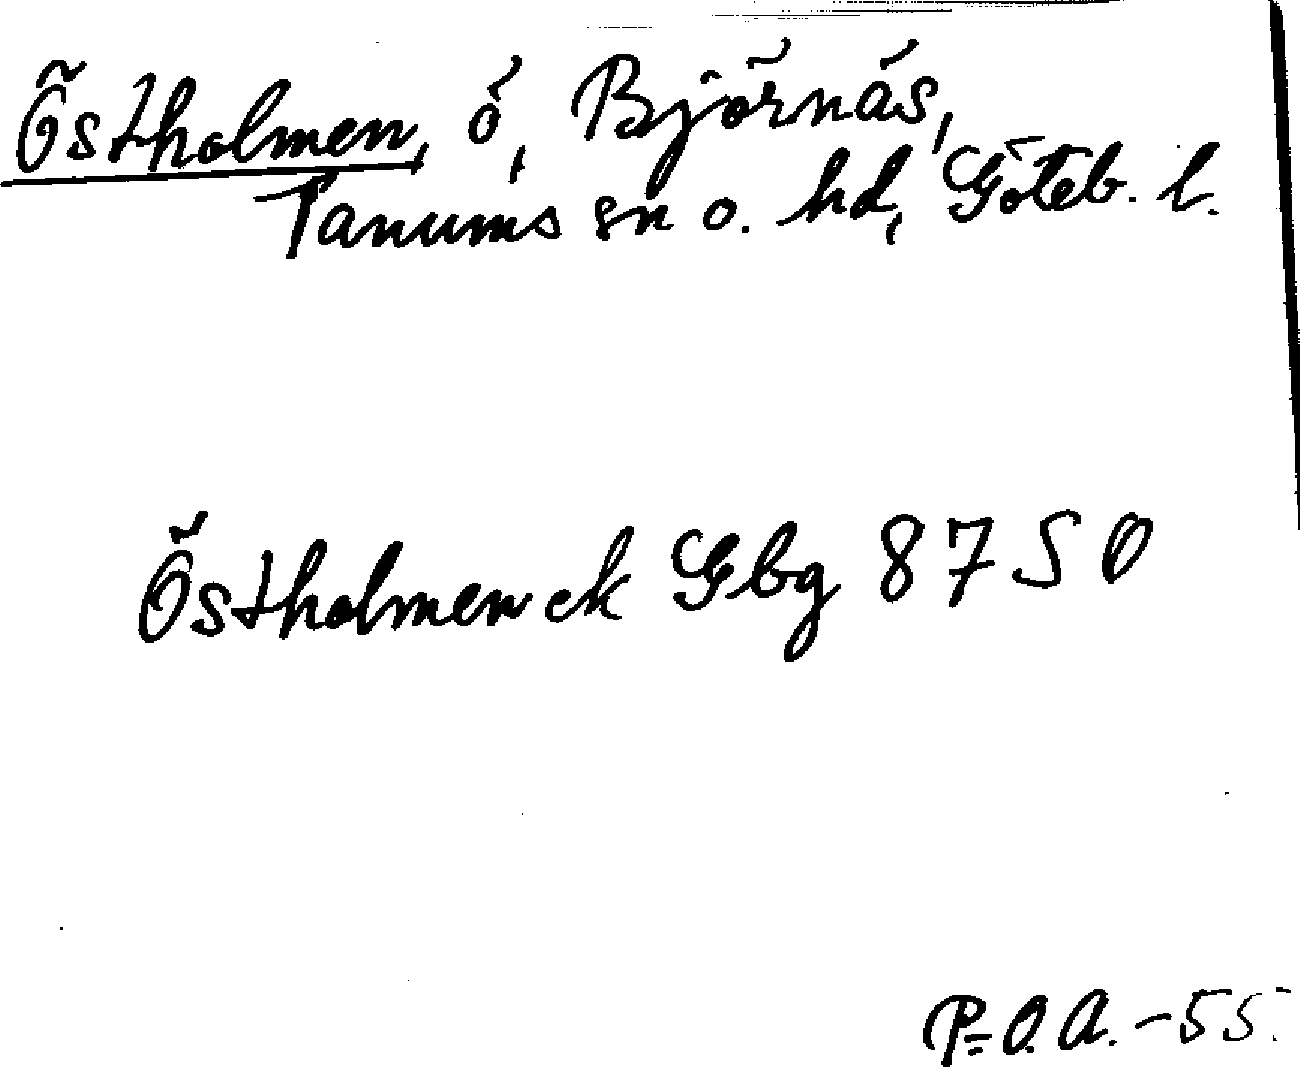 Östholmen, ö, Björnäs,
Tanums sn o. hd, Göteb. l.
Östholmen ek Gbg 8750
P.O.A. -55.